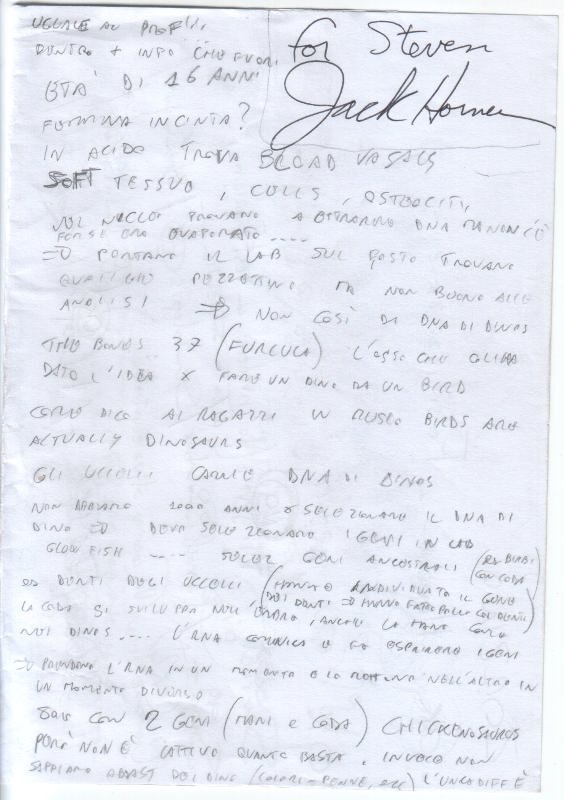 UGUALE AL PROF!!,
for Steven
DENTRO + INFO CHE FUORI
Jack Horner
ETA' DI 16 ANNI
FEMMINA INCINTA?
IN ACIDO TROVA BLOAD VASALS
SOFT TESSUO, CELLS, OSTEOCITI,
NEL NUCLEO PROVANO A ESTRARRE DNA MA NON C'È
FORSE ERA EVAPORATO ....
=> PORTANO IL LAB SUL POSTO TROVANO
QUALCHE PEZZETTINO MA NON BUONO ALLE
ANALISI => NON COSÌ DA DNA DI DINOS
THE BONES 37 (FURCULA) L'OSSO CHE GLI HA
DATO L'IDEA X FARE UN DINO DA UN BIRD
COME DICO AI RAGAZZI IN MUSEO BIRDS ARE
ACTUALLY DINOSAURS
GLI UCCELLI DNA DI DINOS
NON ABBIAMO 1000 ANNI X SELEZIONARE IL DNA DI
DINO => DEVA SELEZIONARE I GENI IN LAB
GLOW FISH .... SELEZ GENI ANCESTRALI (ES BIMBI
CON CODA)
ES DENTI DEGLI UCCELLI (HANNO INDIVIDUATO IL GENE
DEI DENTI => HANNO FATTO POLLO COI DENTI)
LA CODA SI SVILUPPA NELL'EMBRO, ANCHE LA MANO COME
NEI DINOS .... L'RNA COMUNICA E FA ESPRIMERE I GENI
=> PRENDONO L'RNA IN UN MOMENTO E LO METTONO NELL'ALTRO IN
UN MOMENTO DIVERSO
CON 2 GENI (MANI E CODA) CHICKENOSAUROS
PERÒ NON È CATTIVO QUANTO BASTA, INVECE NON
SAPPIAMO ABBAST DEI DINO (COLORI - PENNE, ECC) L'UNCO DIFF È